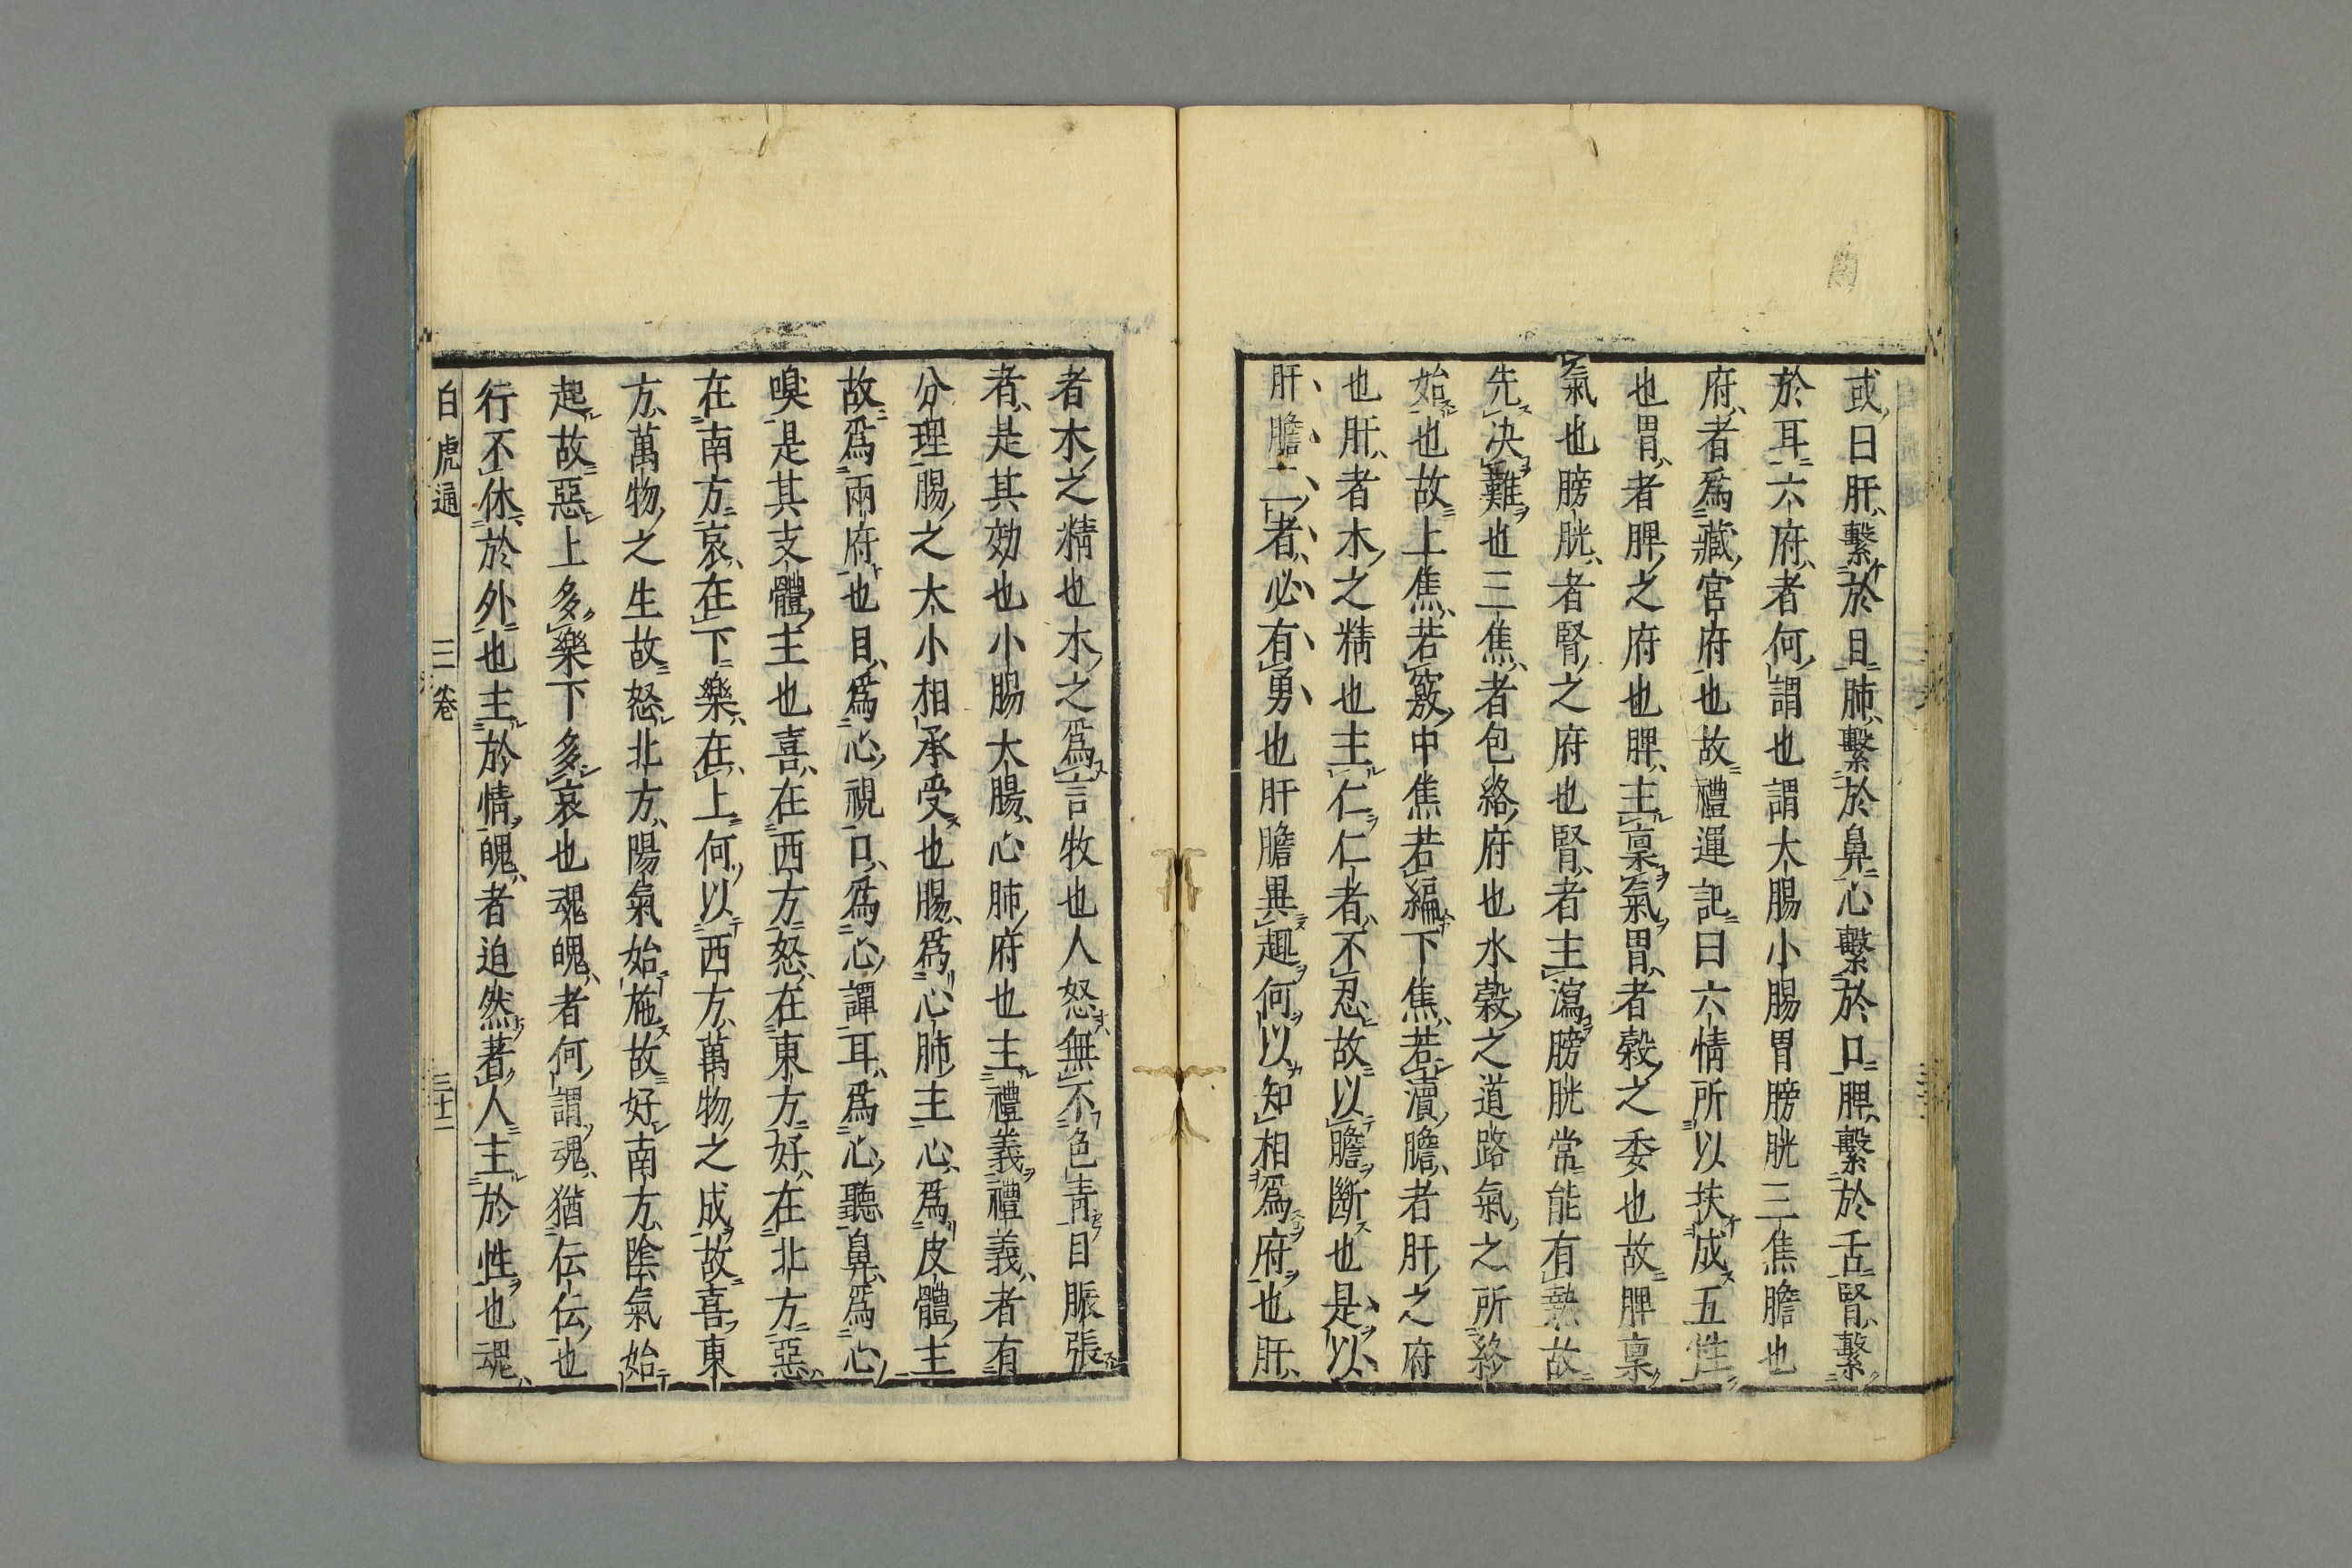 或曰肝繫於目肺繫於鼻心繫於口脾繫於舌腎繫
於耳六府者何謂也謂大腸小腸胃膀胱三焦膽也
府者爲藏官府也故禮運記曰六情所以扶成五性
也胃者脾之府也脾主稟氣胃者穀之委也故脾稟
氣也膀胱者腎之府也腎者主瀉膀胱常能有熱故
先决難也三焦者包絡府也水穀之道路氣之所終
始也故上焦若竅中焦若編下焦若瀆膽者肝之府
也肝者木之精也主仁仁者不忍故以膽斷也是以
肝膽二者必有勇也肝膽異趣何以知相爲府也肝
者木之精也木之爲言牧也人怒無不色青目脈張
者是其効也小腸大腸心肺府也主禮義禮義者有
分理腸之大小相承受也腸爲心肺主心爲皮體主
故爲兩府也目爲心視口爲心譚耳爲心聽鼻爲心
嗅是其支體主也喜在西方怒在東方好在北方惡
在南方哀在下樂在上何以西方萬物之成故喜東
方萬物之生故怒北方陽氣始施故好南方陰氣始
起故惡上多樂下多哀也魂魄者何謂魂猶伝伝也
行不休於外也主於情魄者迫然著人主於性也魂
白虎通 三卷 三十二